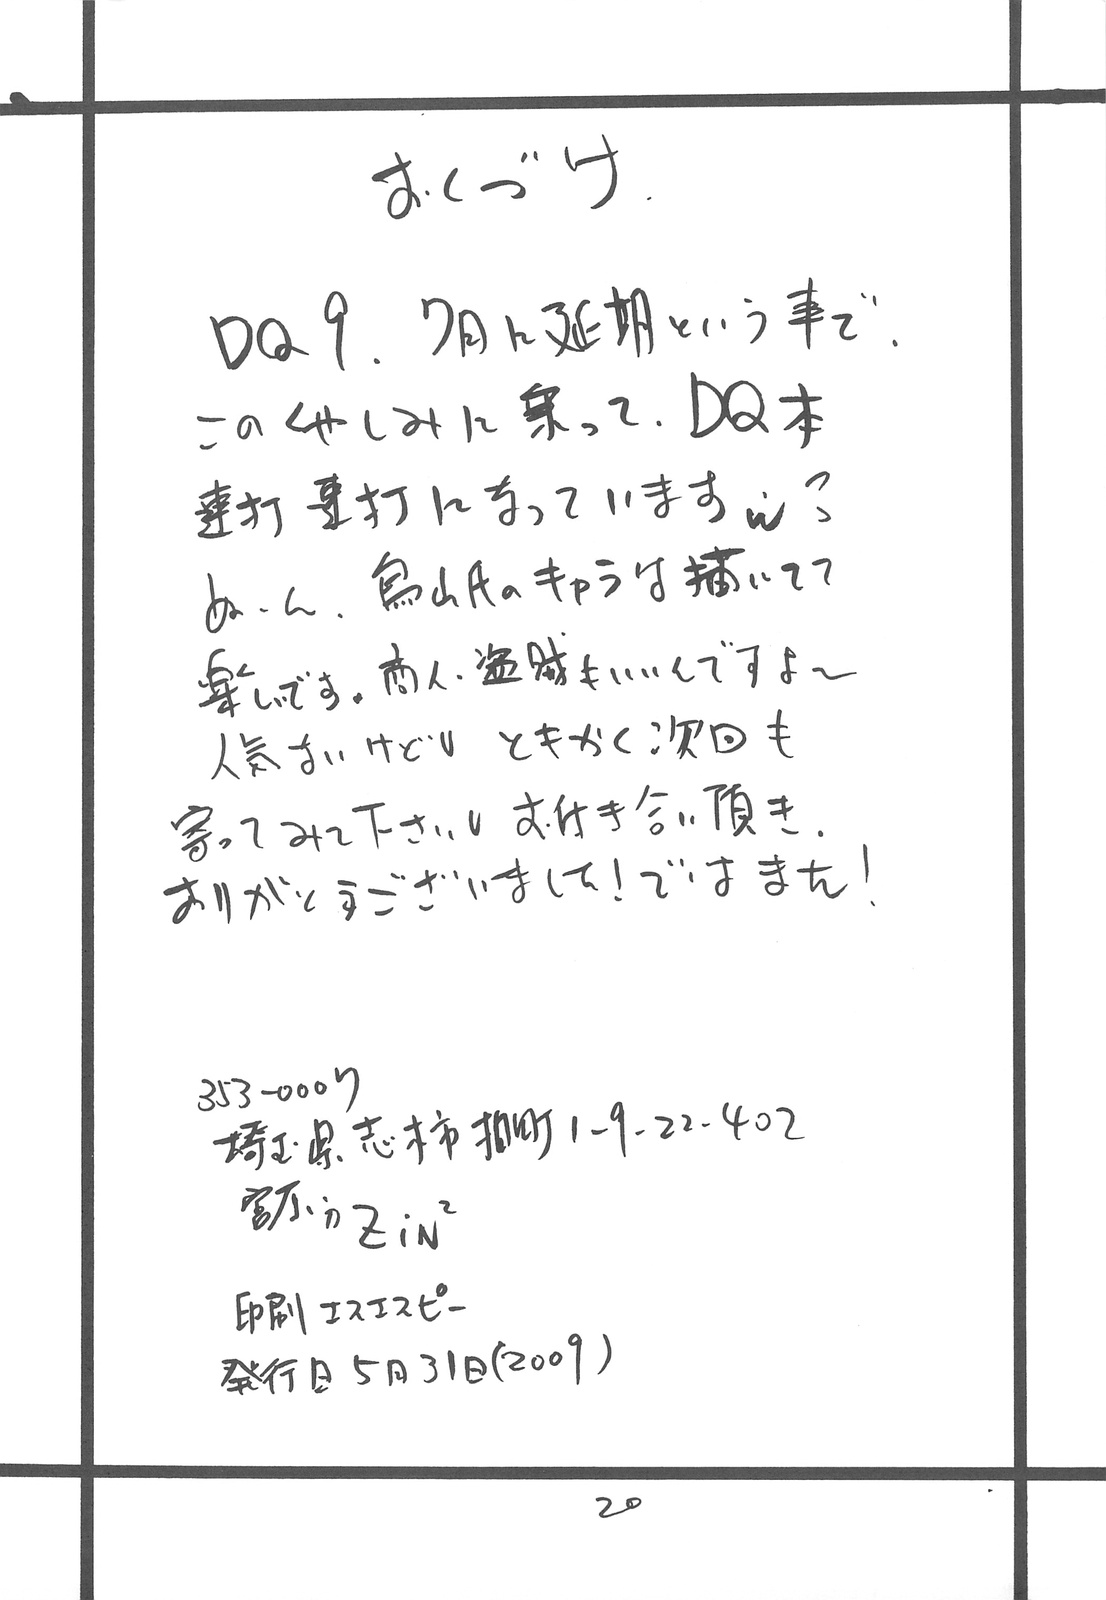 おくづけ.
DQ9.7月に延期という事で.
このくやしみに乗って.DQ本
連打連打になっていますw?
ぬーん.鳥山氏のキャラは描いてて
楽しいです。商人・盗賊もいいんですよ〜
人気ないけどし ともかく次回も
寄ってみて下さいし お付き合い頂き.
ありがとうございました!ではまた!
353-0007
埼玉県志木市柏町1-9-22-402
ZiN²
印刷 エスエスピー
発行日 5月31日(2009)
20